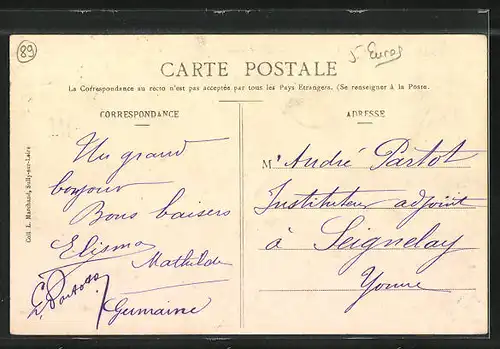 89
5 Euros
CARTE POSTALE
La Correspondance au recto n'est pas acceptée par tous les Pays Etrangers. (Se renseigner à la Poste.
CORRESPONDANCE
Un grand
bonjour
Bons baisers
Elisma
Mathilde
Germaine
Coll L. Marchand, Sully-sur-Loire
ADRESSE
Mr André Partot
Instituteur adjoint
à Seignelay
Yonne